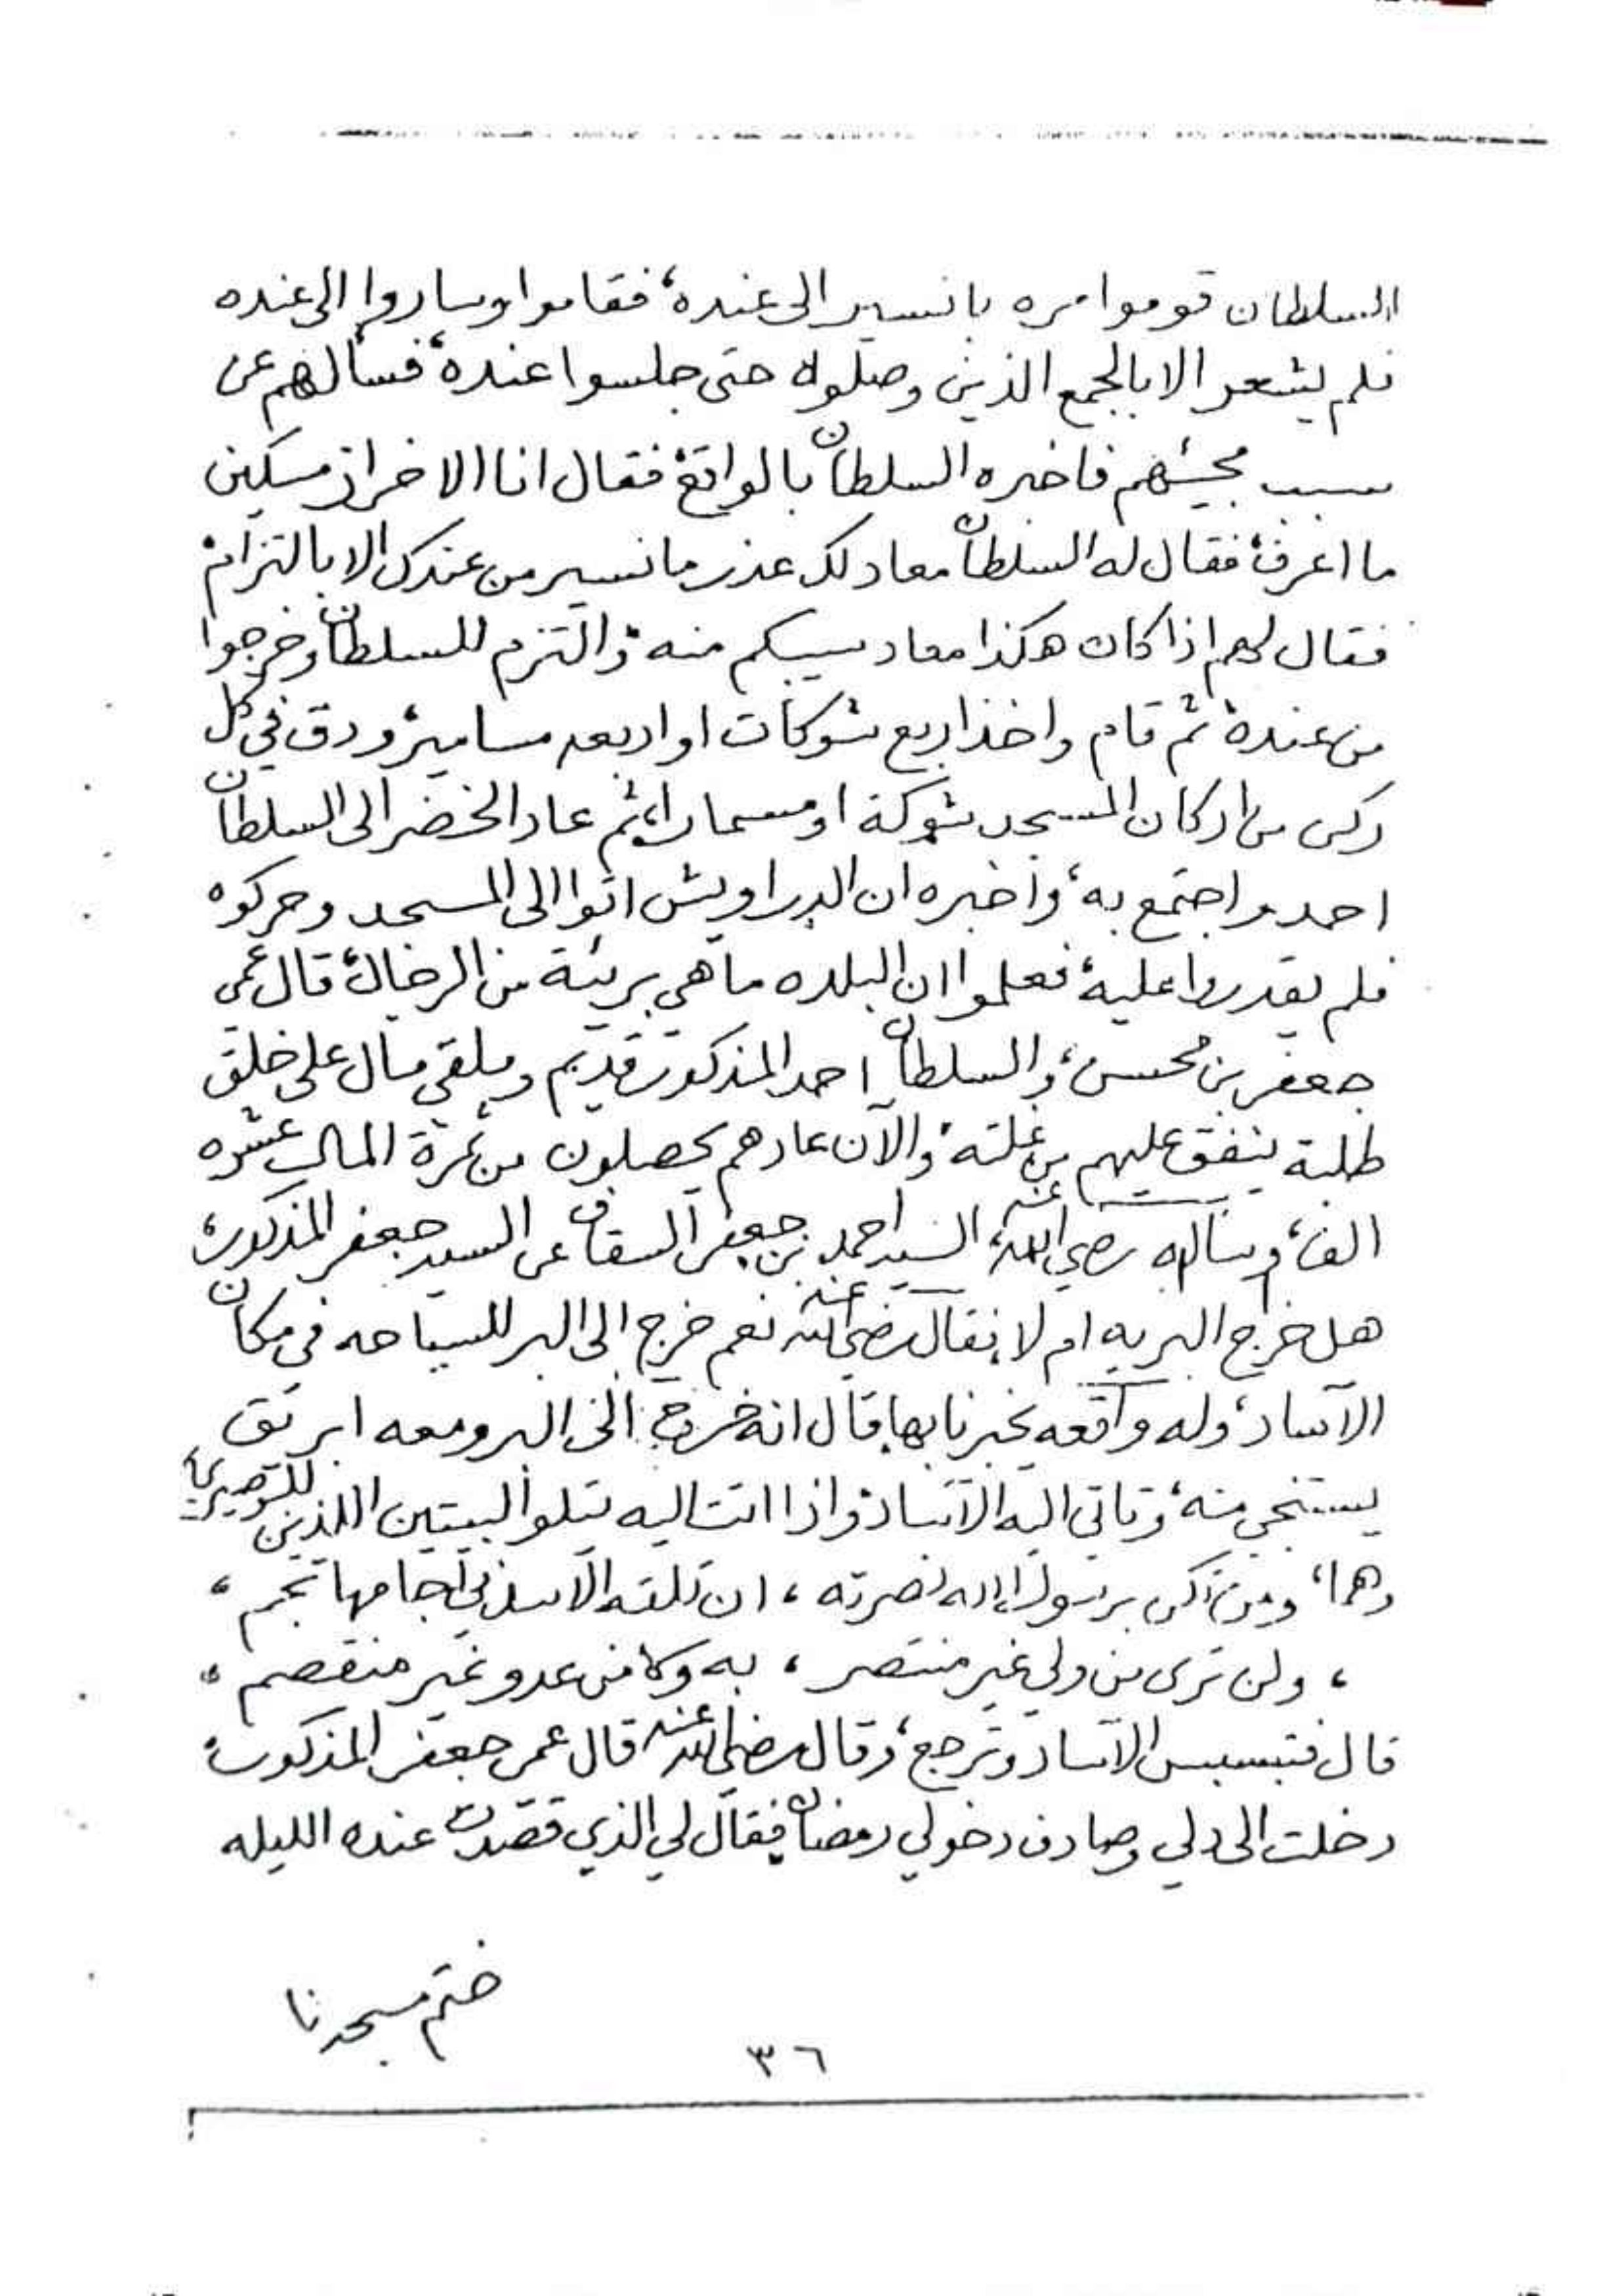 السلطان قوموا مره بانسير الى عنده، فقاموا وساروا الى عنده
فلم يشعر الا بالجمع الذين وصلوله حتى جلسوا عنده، فسألهم عن
سبب مجيئهم فاخبره السلطان بالواقع، فقال انا الا خراز مسكين
ما اعرف، فقال له السلطان معاد لك عذر ما نسير من عندك الا بالتزام،
فقال لهم اذا كان هكذا معاد سيبكم منه، والتزم للسلطان وخرجوا
من عنده، ثم قام واخذ اربع شوكات او اربعه مسامير، ودق في كل
ركن من اركان المسجد شوكة او مسمارا، ثم عاد الخضر الى السلطان
احمد واجتمع به، واخبره ان الدراويش اتوا الى المسجد وحركوه
فلم يقدروا عليه، فعلموا ان البلده ما هي بريئة من الرجال، قال عمي
جعفر بن محسن، والسلطان احمد المذكور قديم وملقي مال على خلق
طلبة ينفق عليهم من غلته، والآن عادهم يحصلون من ثمرة المال عشره
الف، وساله رضي الله عنه السيد احمد بن جعفر السقاف عن السيد جعفر المذكور،
هل خرج البريه ام لا، فقال رضي الله عنه نعم خرج الى البر للسياحه في مكان
الآساد، وله واقعه يخبرنا بها، قال انه خرج الى البر ومعه ابريق
يستنجي منه، وتاتي اليه الآساد، واذا اتت اليه يتلو البيتين اللذين للبوصيري
وهما، ومن تكن برسول الله نصرته، ان تلقه الاسد في آجامها تجم،
، ولن ترى من ولي غير منتصر، به ولا من عدو غير منقصم،
قال فتبسبس الآساد وترجع، وقال رضي الله عنه قال عمي جعفر المذكور،
دخلت الى دلي وصادف دخولي رمضان فقال لي الذي قصدت عنده الليله
ختم مسجدنا
٣٦